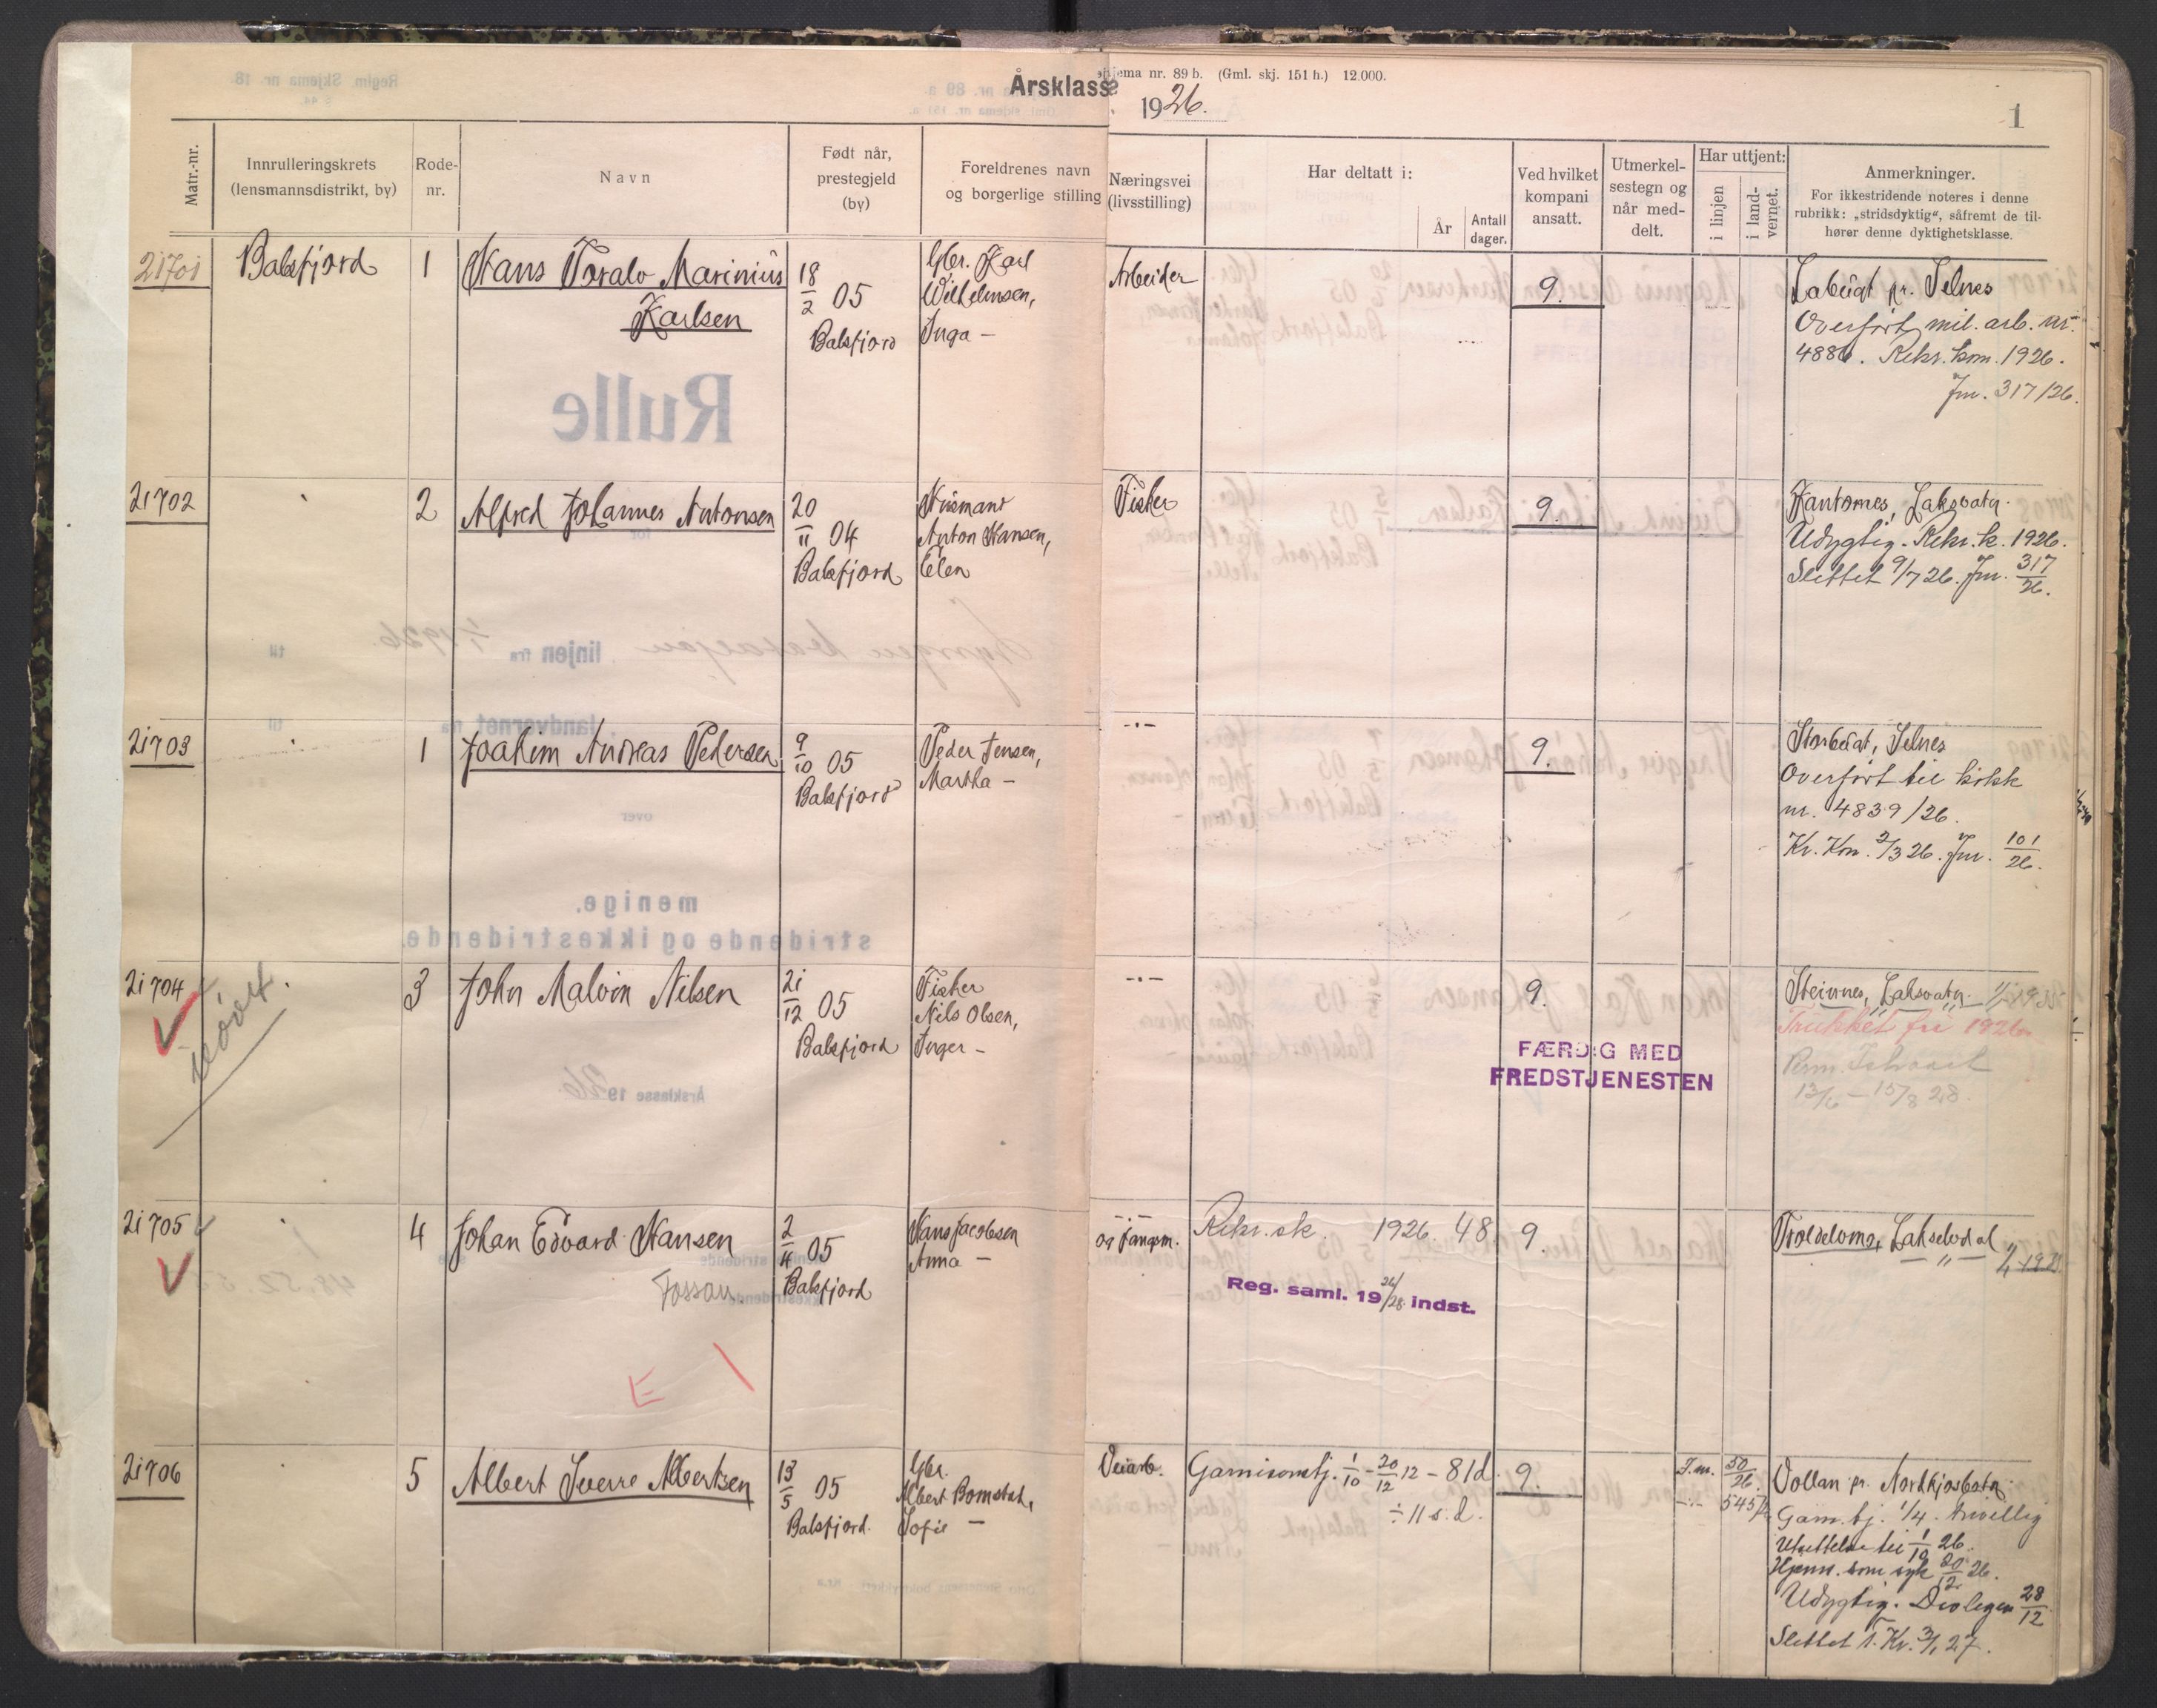 Skjema nr. 89 b. (Gml. skj. 151 h.) 12.000.
Årsklasse 1926.
1
Matr.-nr.
Innrulleringskrets
(lensmannsdistrikt, by)
Rode-
nr.
Navn
Født når,
prestegjeld
(by)
Foreldrenes navn
og borgerlige stilling
Næringsvei
(livsstilling)
Har deltatt i:
År
Antall
dager.
Ved hvilket
kompani
ansatt.
Utmerkel-
sestegn og
når med-
delt.
Har uttjent:
i linjen
i land-
vernet.
Anmerkninger.
For ikkestridende noteres i denne
rubrikk: „stridsdyktig“, såfremt de til-
hører denne dyktighetsklasse.
21701
Balsfjord
1
Hans Toralv Marinius
Karlsen
18/2 05
Balsfjord
Gbr. Karl
Wilhelmsen,
Inga –
Arbeider
9.
Labugt pr. Selnes
Overført mil. arb. nr.
4886. Rekr. kom. 1926.
Jnr. 317/26.
21702
2
Alfred Johannes Antonsen
20/11 04
Balsfjord
Husmand
Anton Hansen,
Elen
Fisker
9.
Kantornes, Laksvatn.
Udygtig. Rekr. k. 1926.
Slettet 9/7 26. Jnr. 317/26.
21703
1
Joakim Andreas Pedersen
9/10 05
Balsfjord
Peder Jensen,
Martha –
–·–
9.
Storbugt, Selnes
Overført til kokk
nr. 4839/26.
Kr. Km. 2/3 26. Jnr. 101/26.
21704
3
John Malvin Nilsen
21/12 05
Balsfjord
Fisker
Nils Olsen,
Inger –
–·–
9.
FÆRDIG MED
FREDSTJENESTEN
Steinnes, Laksvatn.
Trukket fri 1926
13/6 – 15/8 28.
21705
4
Johan Edvard Hansen
Fossan.
2/11 05
Balsfjord
Hans Jacobsen
Anna –
–·–
og fangsm.
Rekr. sk. 1926. 48
9.
Reg. saml. 19 26/28 indst.
Troldelvmo, Lakselvdal
– " –
E
21706
5
Albert Sverre Albertsen
13/5 05
Balsfjord.
Gbr.
Albert Bomstad,
Sofie –
Veiarb.
Garnisonstj. 1/10 – 20/12 12 – 81 d.
÷ 11 s. d.
9.
J.nr. 50/26
Vollan pr. Nordkjosbotn.
Garn. tj. 1/4. frivillig
Utsettelse til 1/10 26.
Hjems. som syk 20/12 26.
Udygtig. Div.legen 28/12
Slettet